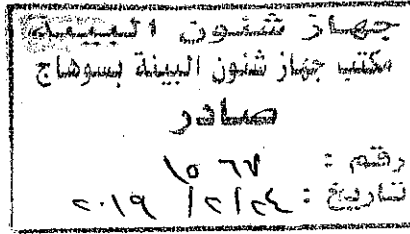 جهاز شئون البيئة
مكتب جهاز شئون البيئة بسوهاج
صادر
رقم : ١٥٦٧
تاريخ : ٢٤/٢/٢٠١٩